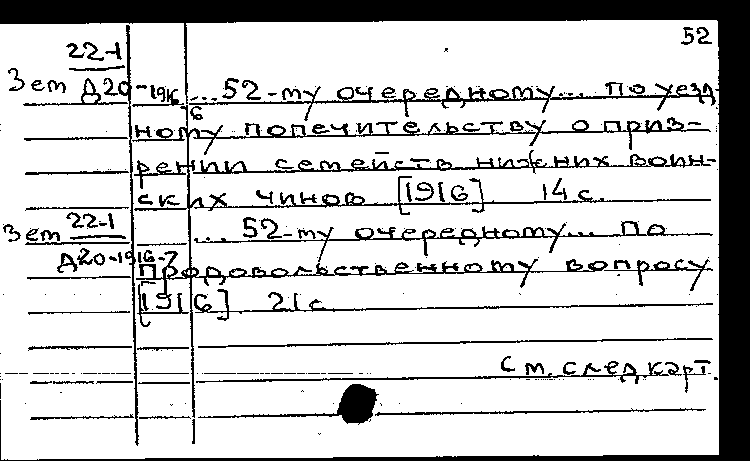 52
22-1
Зет Д20-1916-6 ...52-му очередному... по уезд-
ному попечительству о приз-
рении семейств нижних воин-
ских чинов [1916] 14 с.
22-1
Зет ... 52-му очередному... по
Д20-1916-7
продовольственному вопросу
[1916] 21 с
См. след карт.